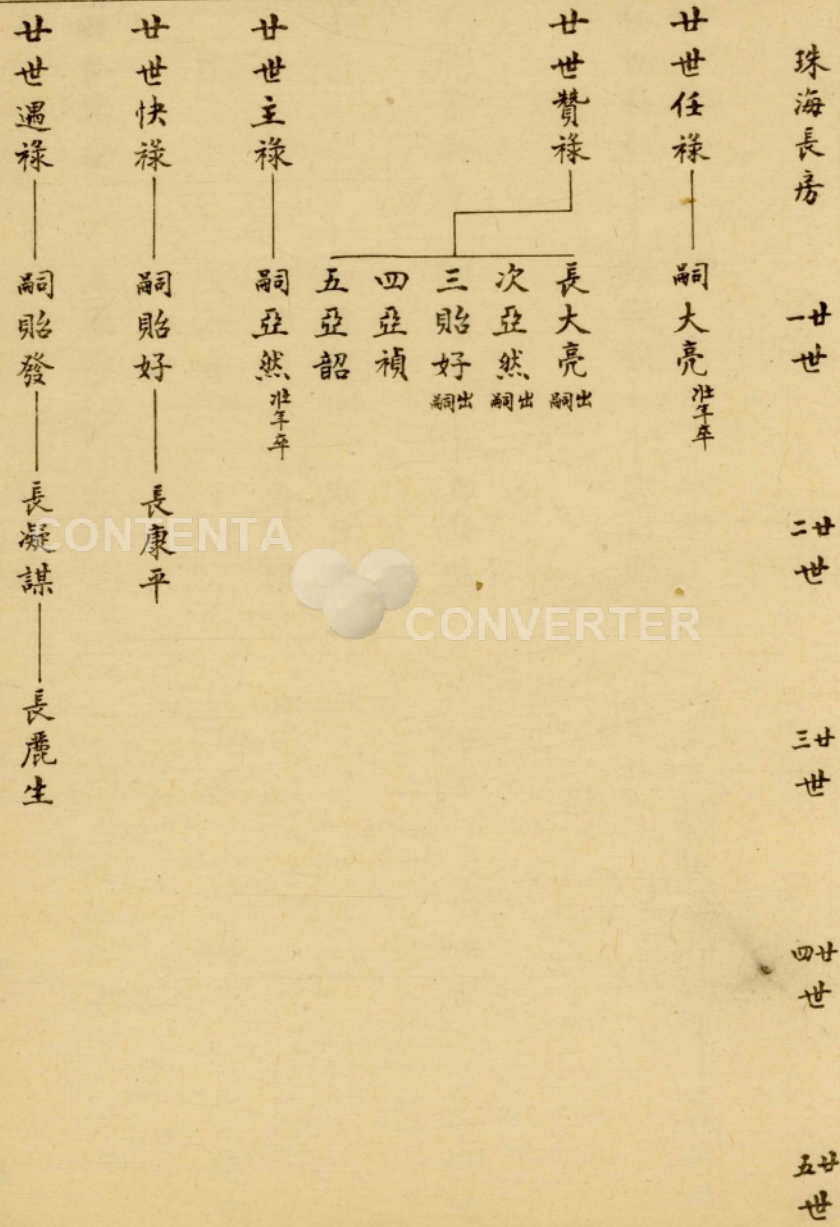 珠海長房
廿一世
廿二世
廿三世
廿四世
廿五世
廿世任祿
嗣大亮 壯年卒
廿世贊祿
長大亮 出嗣
次亞然 出嗣
三貽好 出嗣
四亞禎
五亞韶
廿世主祿
嗣亞然 壯年卒
廿世快祿
嗣貽好
長康平
廿世遇祿
嗣貽發
長凝謀
長麂生
CONTENTA
CONVERTER